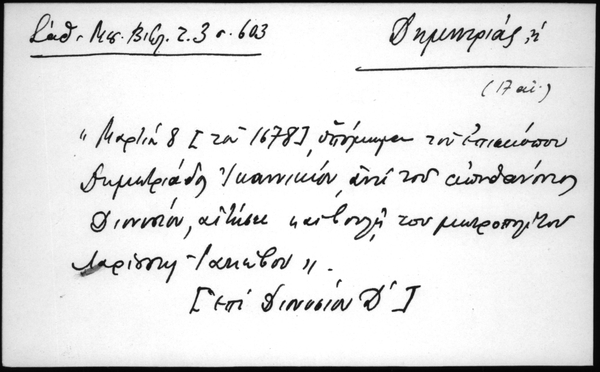 Σάθ. Μεσ. Βιβλ. τ. 3 σ. 603
Δημητριάς, ἡ
(17 αἰ.)
"Μαρτίῳ 8 [τοῦ 1678], ὑπόμνημα τοῦ ἐπισκόπου
Δημητριάδος Ἰωαννικίου, ἀντὶ τοῦ ἀποθανόντος
Διονυσίου, αἰτήσει καὶ βουλῇ τοῦ μητροπολίτου
Λαρίσσης Ἰακώβου".
[Ἐπὶ Διονυσίου Δ']